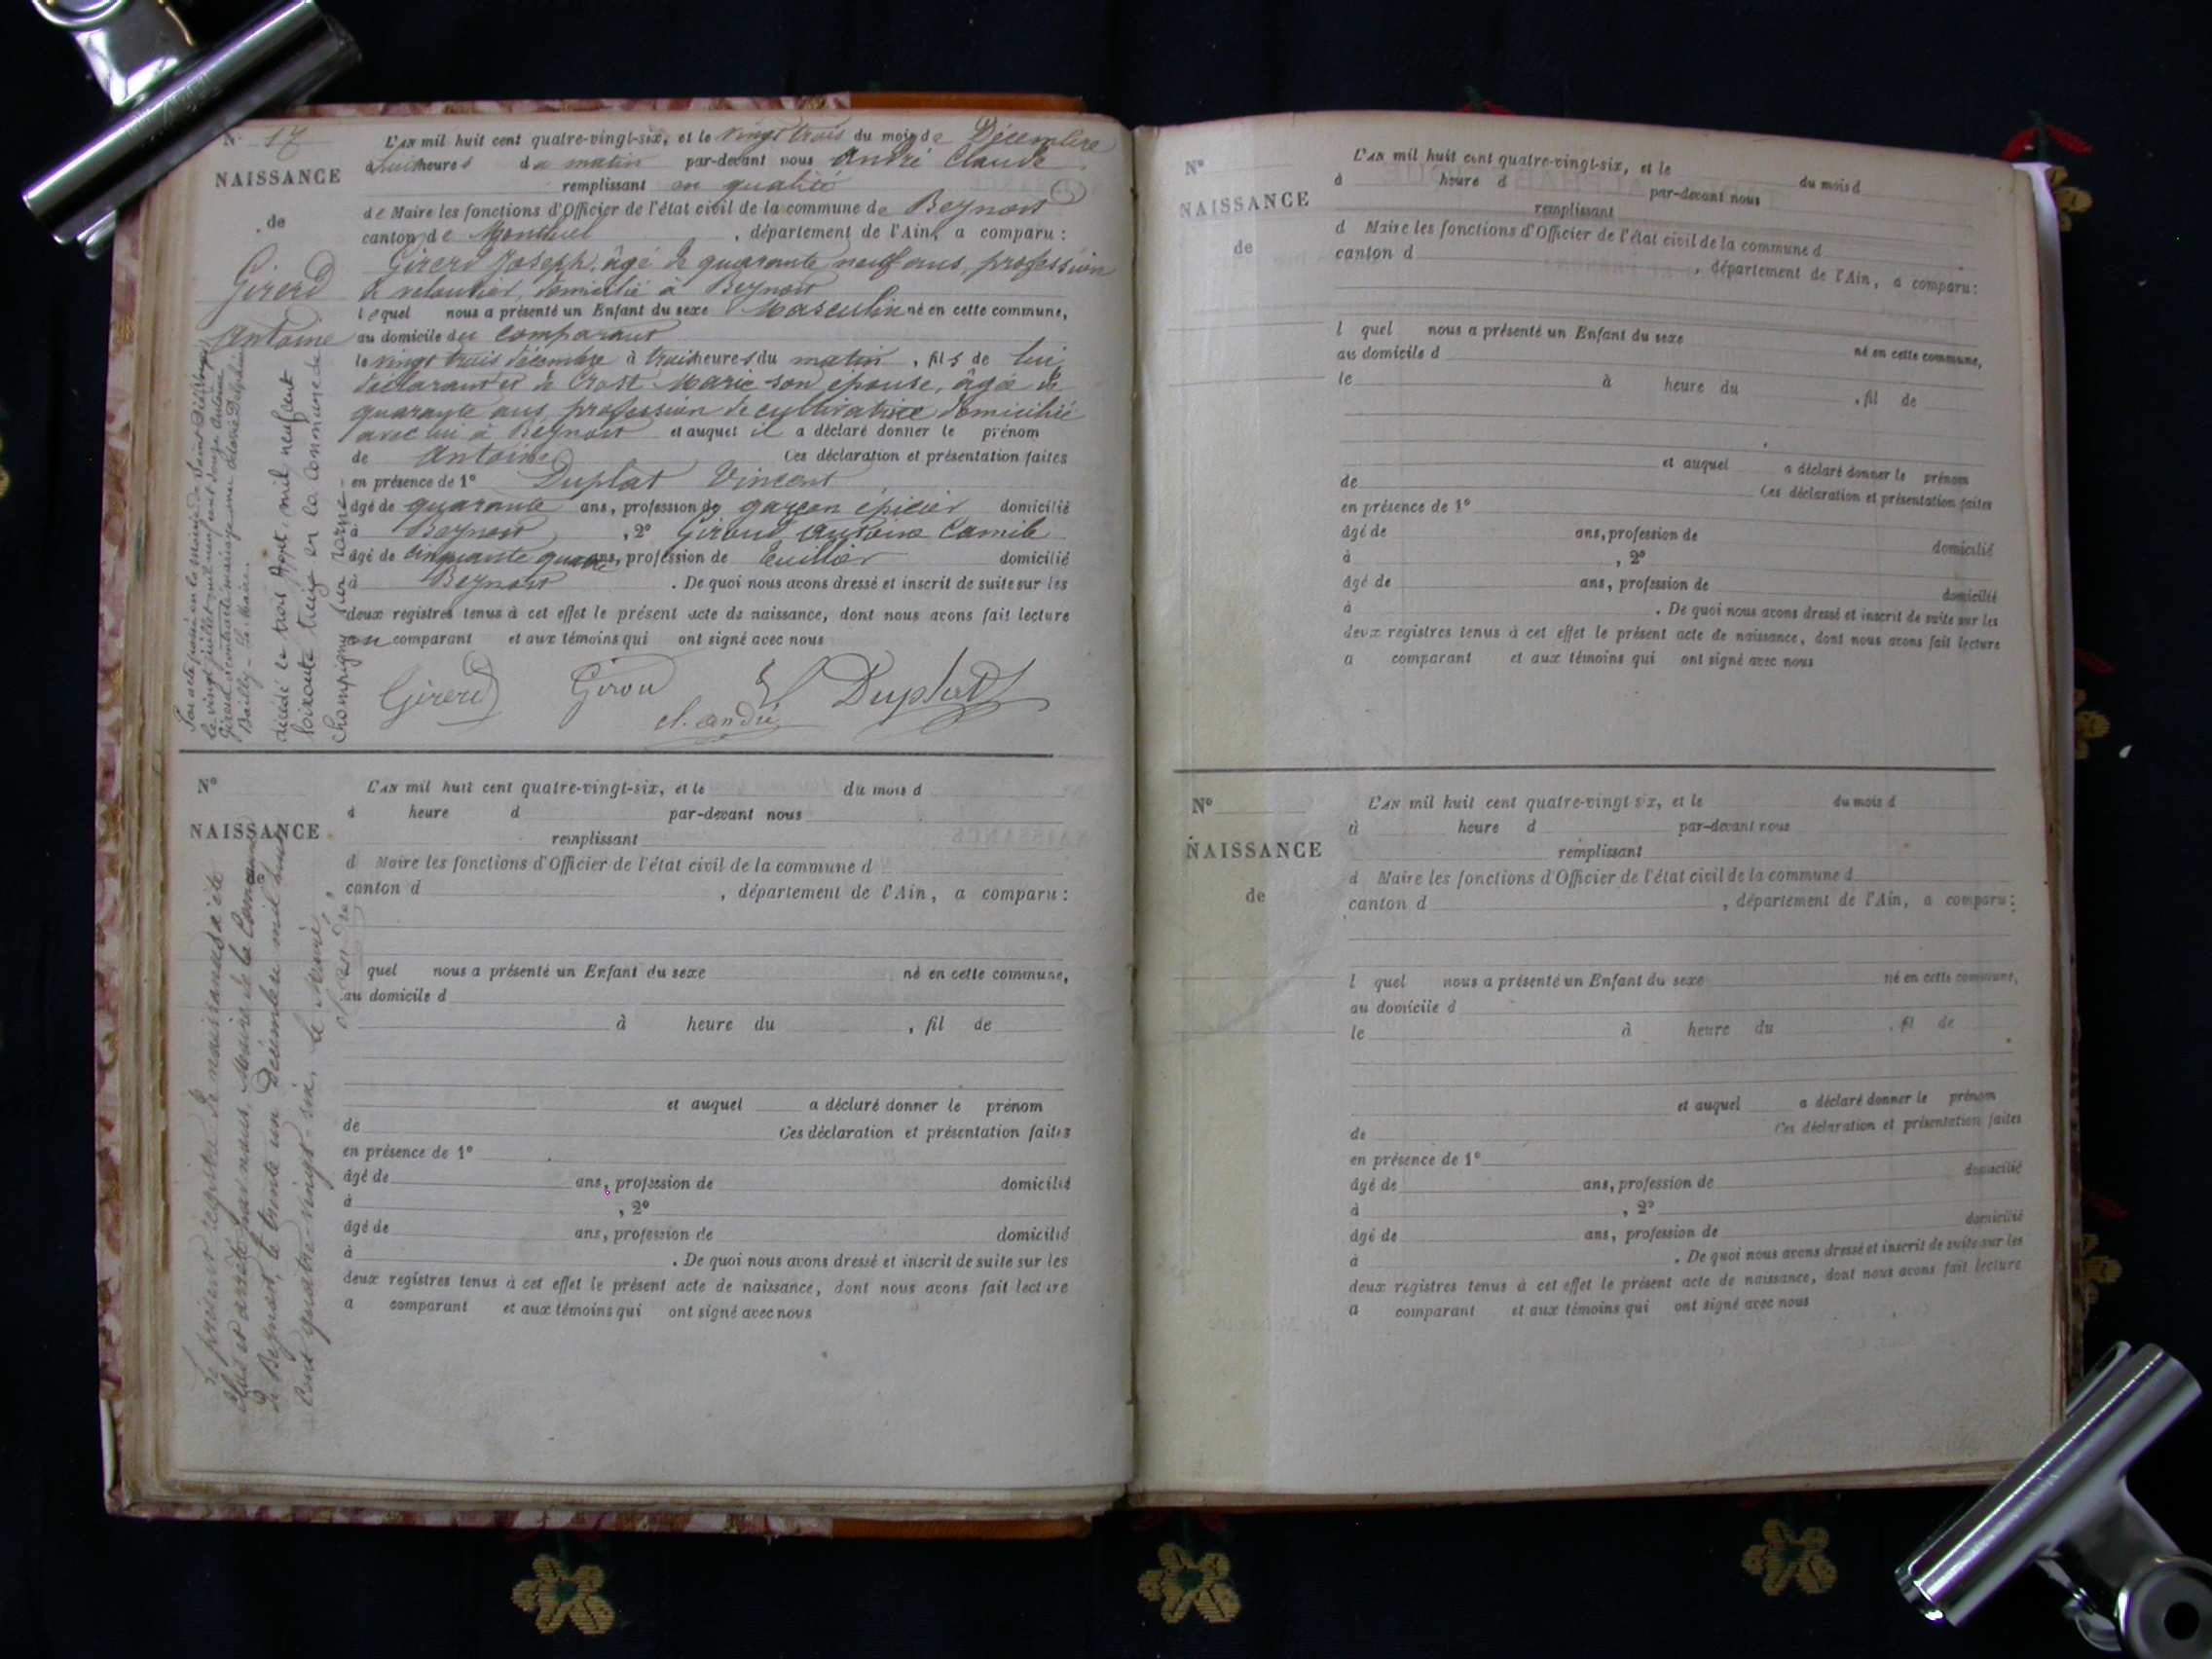 N° 17
NAISSANCE
de
Girerd
Antoine
L'AN mil huit cent quatre-vingt-six, et le vingt trois du mois de Décembre
à huit heures du matin par-devant nous André Claude
remplissant en qualité
de Maire les fonctions d'Officier de l'état civil de la commune de Beynost
canton de Montluel, département de l'Ain, a comparu :
Girerd Joseph, âgé de quarante neuf ans, profession
de domicilié à Beynost
lequel nous a présenté un Enfant du sexe Masculin né en cette commune,
au domicile du comparant
le vingt trois décembre à trois heures du matin, fils de lui
déclarant et de Crost Marie son épouse, âgée de
quarante ans, profession de cultivatrice domiciliée
avec lui à Beynost et auquel il a déclaré donner le prénom
de Antoine Ces déclaration et présentation faites
en présence de 1° Duplat Vincent
âgé de quarante ans, profession de garçon épicier domicilié
à Beynost, 2° Giroud Antoine Camile
âgé de cinquante quatre ans, profession de domicilié
à Beynost. De quoi nous avons dressé et inscrit de suite sur les
deux registres tenus à cet effet le présent acte de naissance, dont nous avons fait lecture
au comparant et aux témoins qui ont signé avec nous
Girerd Girou Duplat
cl. andré
Par acte passé en la mairie de Saint
le vingt juillet mil neuf cent douze Antoine
Girerd a contracté mariage avec Delphine
Bailly - Le Maire.
décédé le trois Août mil neuf cent
soixante treize en la commune de
Champigny sur Marne -
N°
NAISSANCE
de
L'AN mil huit cent quatre-vingt-six, et le du mois d
à heure d par-devant nous
remplissant
d Maire les fonctions d'Officier de l'état civil de la commune d
canton d , département de l'Ain, a comparu :
quel nous a présenté un Enfant du sexe né en cette commune,
au domicile d
à heure du , fil de
et auquel a déclaré donner le prénom
de Ces déclaration et présentation faites
en présence de 1°
âgé de ans, profession de domicilié
à , 2°
âgé de ans, profession de domicilié
à . De quoi nous avons dressé et inscrit de suite sur les
deux registres tenus à cet effet le présent acte de naissance, dont nous avons fait lecture
a comparant et aux témoins qui ont signé avec nous
Le présent registre de naissances a été
clos et arrêté par nous, Maire de la Commune
de Beynost, le trente un Décembre mil huit
cent quatre-vingt-six. Le Maire,
cl. andré
N°
NAISSANCE
de
L'AN mil huit cent quatre-vingt-six, et le du mois d
à heure d par-devant nous
remplissant
d Maire les fonctions d'Officier de l'état civil de la commune d
canton d , département de l'Ain, a comparu :
l quel nous a présenté un Enfant du sexe né en cette commune,
au domicile d
le à heure du , fil de
et auquel a déclaré donner le prénom
de Ces déclaration et présentation faites
en présence de 1°
âgé de ans, profession de domicilié
à , 2°
âgé de ans, profession de domicilié
à . De quoi nous avons dressé et inscrit de suite sur les
deux registres tenus à cet effet le présent acte de naissance, dont nous avons fait lecture
a comparant et aux témoins qui ont signé avec nous
N°
NAISSANCE
de
L'AN mil huit cent quatre-vingt six, et le du mois d
à heure d par-devant nous
remplissant
d Maire les fonctions d'Officier de l'état civil de la commune d
canton d , département de l'Ain, a comparu :
l quel nous a présenté un Enfant du sexe né en cette commune,
au domicile d
le à heure du , fil de
et auquel a déclaré donner le prénom
de Ces déclaration et présentation faites
en présence de 1°
âgé de ans, profession de domicilié
à , 2°
âgé de ans, profession de domicilié
à . De quoi nous avons dressé et inscrit de suite sur les
deux registres tenus à cet effet le présent acte de naissance, dont nous avons fait lecture
a comparant et aux témoins qui ont signé avec nous